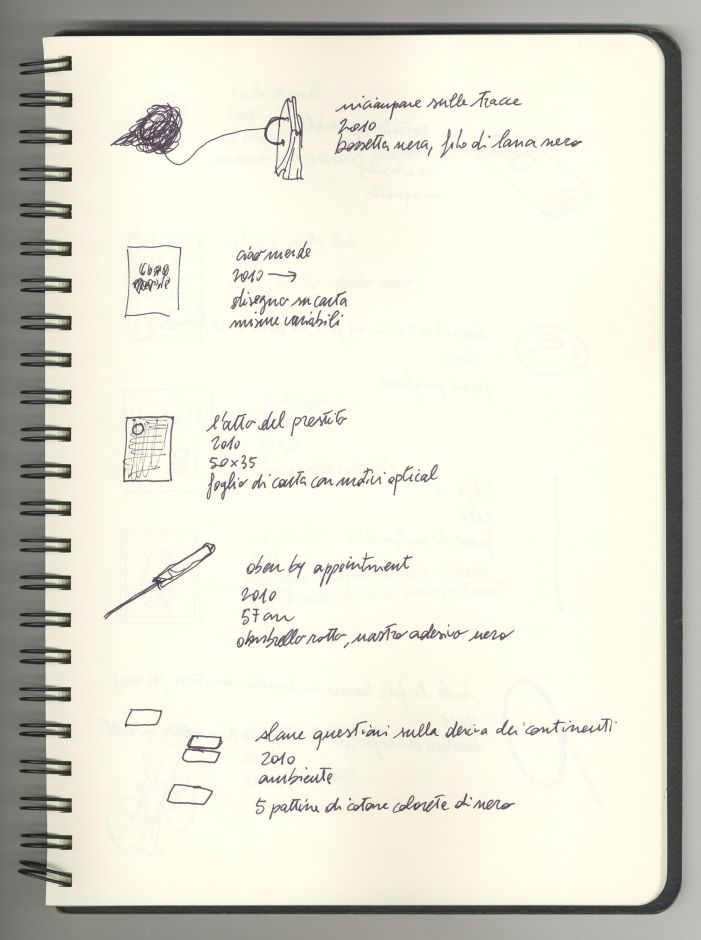 inciampare sulle tracce
2010
borsetta nera, filo di lana nero
ciao merde
ciao merde
2010 →
disegno su carta
misure variabili
l'atto del prestito
2010
50x35
foglio di carta con motivi optical
open by appointment
2010
57 cm
ombrello rotto, nastro adesivo nero
alcune questioni sulla deriva dei continenti
2010
ambiente
5 pattine di cotone colorate di nero